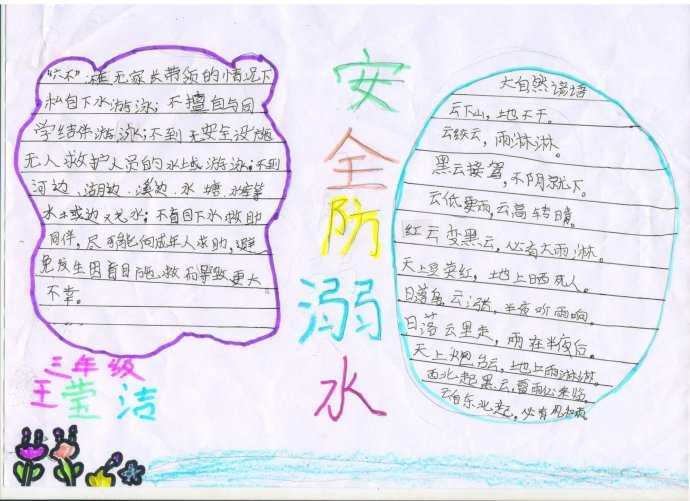 “六不”：在无家长带领的情况下
私自下水游泳；不擅自与同
学结伴游泳；不到无安全设施
无人救护人员的水域游泳；不到
河边、湖边、溪边、水塘、水库等
水域边玩水；不盲目下水救助
同伴，尽可能向成年人求助，避
免发生因盲目施救而导致更大
不幸。
三年级
王莹洁
安全防溺水
大自然谚语
云下山，地不干。
云绞云，雨淋淋。
黑云接驾，不阴就下。
云低要雨，云高转晴。
红云变黑云，必有大雨淋。
天上豆荚红，地上晒死人。
日落乌云涨，半夜听雨响。
日落云里走，雨在半夜后。
天上炮台云，地上雨淋淋。
西北起黑云，雷雨必来临。
云自东北起，必有风和雨